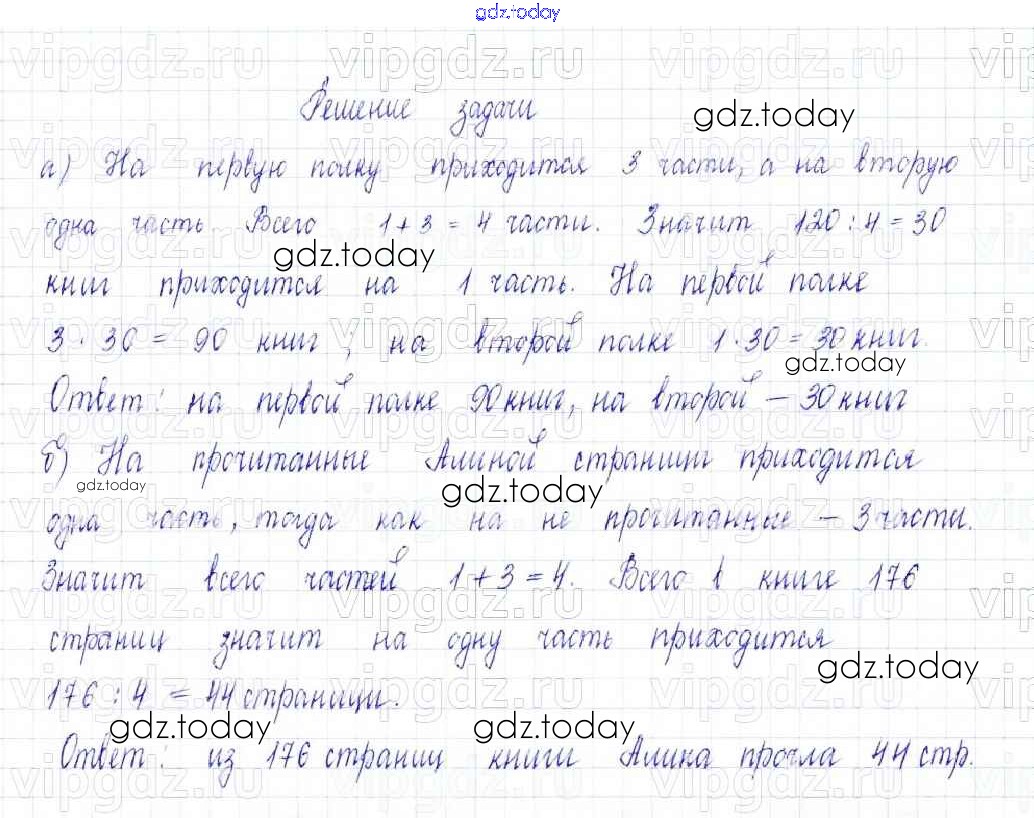 gdz.today
Решение задачи
а) На первую полку приходится 3 части, а на вторую
одна часть Всего 1 + 3 = 4 части. Значит 120 : 4 = 30
книг приходится на 1 часть. На первой полке
3 · 30 = 90 книг; на второй полке 1 · 30 = 30 книг.
Ответ: на первой полке 90 книг, на второй – 30 книг
б) На прочитанные Алиной страницы приходится
одна часть, тогда как на не прочитанные – 3 части.
Значит всего частей 1 + 3 = 4. Всего в книге 176
страниц значит на одну часть приходится
176 : 4 = 44 страницы.
Ответ: из 176 страниц книги Алина прочла 44 стр.